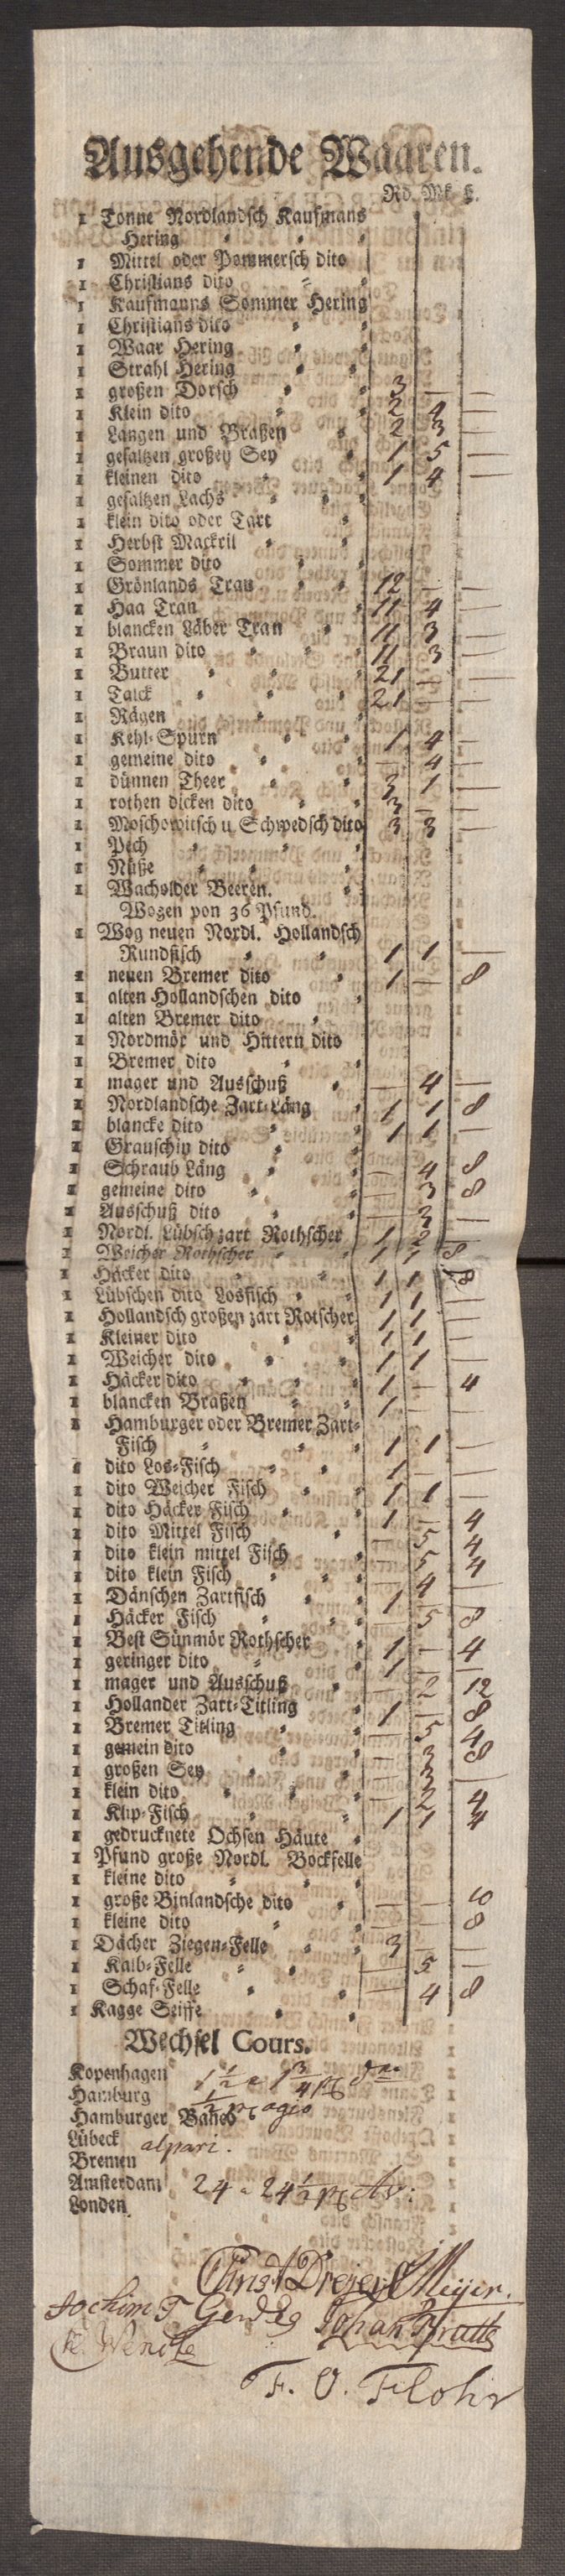 Ausgehende Waaren.
Rd. Mk ß.
1 Tonne Nordlandsch Kaufmans
Hering
1 Mittel oder Pommersch dito
1 Christians dito
1 Kaufmanns Sommer Hering
1 Christians dito
1 Waar Hering
1 Strahl Hering
1 großen Dorsch 3 — —
1 Klein dito 2 4 —
1 Langen und Braßen 2 3 —
1 gesaltzen großen Sey 1 5 —
1 kleinen dito 1 4 —
1 gesaltzen Lachs
1 klein dito oder Tart
1 Herbst Mackril
1 Sommer dito
1 Grönlands Tran 12 — —
1 Haa Tran 11 4 —
1 blancken Läber Tran 11 3 —
1 Braun dito 11 3 —
1 Butter 21 — —
1 Talck 21 — —
1 Rägen
1 Kehl-Spurn 1 4 —
1 gemeine dito — 4 —
1 dünnen Theer 3 1 —
1 rothen dicken dito 3 —
1 Moschowitsch u Schwedsch dito 3 3 —
1 Pech
1 Nüße
1 Wacholder Beeren.
Wogen von 36 Pfund.
1 Wog neuen Nordl. Hollandsch
Rundfisch 1 1 —
1 neuen Bremer dito 1 — 8
1 alten Hollandschen dito
1 alten Bremer dito
1 Nordmör und Hittern dito
1 Bremer dito
1 mager und Ausschuß — 4 —
1 Nordlandsche Zart-Läng 1 1 8
1 blancke dito 1 1 —
1 Grauschip dito
1 Schraub Läng — 4 8
1 gemeine dito — 3 8
1 Ausschuß dito — 3 —
1 Nordl. Lübsch zart Rothscher 1 2
1 Weicher Rothscher 1 1 8
1 Häcker dito 1 1 8
1 Lübschen dito Losfisch 1 1 —
1 Hollandsch großen zart Rotscher 1 1 —
1 Kleiner dito 1 1 —
1 Weicher dito 1 1 —
1 Häcker dito 1 — 4
1 blancken Braßen 1 — —
1 Hamburger oder Bremer Zart-
Fisch 1 1 —
1 dito Los-Fisch 1 — —
1 dito Weicher Fisch 1 1 —
1 dito Häcker Fisch 1 — 4
1 dito Mittel Fisch — 5 4
1 dito klein mittel Fisch — 5 4
1 dito klein Fisch — 4 —
1 Dänschen Zartfisch 1 —
1 Häcker Fisch — 5 8
1 Best Sünmör Rothscher 1 — 4
1 geringer dito 1 — —
1 mager und Ausschuß — 2 12
1 Hollander Zart-Titling 1 — 8
1 Bremer Titling — 5 4
1 gemein dito — 3 8
1 großen Sey — 3 —
1 klein dito — 2 4
1 Klip-Fisch 1 1 4
1 gedrucknete Ochsen Häute
1 Pfund große Nordl. Bockfelle
1 kleine dito
1 große Binlandsche dito — — 10
1 kleine dito — — 8
1 Dächer Ziegen-Felle 3 — —
1 Kalb-Felle — 5 —
1 Schaf-Felle — 4 8
1 Kagge Seiffe
Wechsel Cours.
Kopenhagen 1 1/2 a 1 3/4
Hamburg
Hamburger Banco 1/2 agio
Lübeck alpari.
Bremen
Amsterdam 24 a 24 1/2
Londen.
Christ Dreyer Meyer.
Jochim Gerdes Johan
Wencke
F. O. Flohr